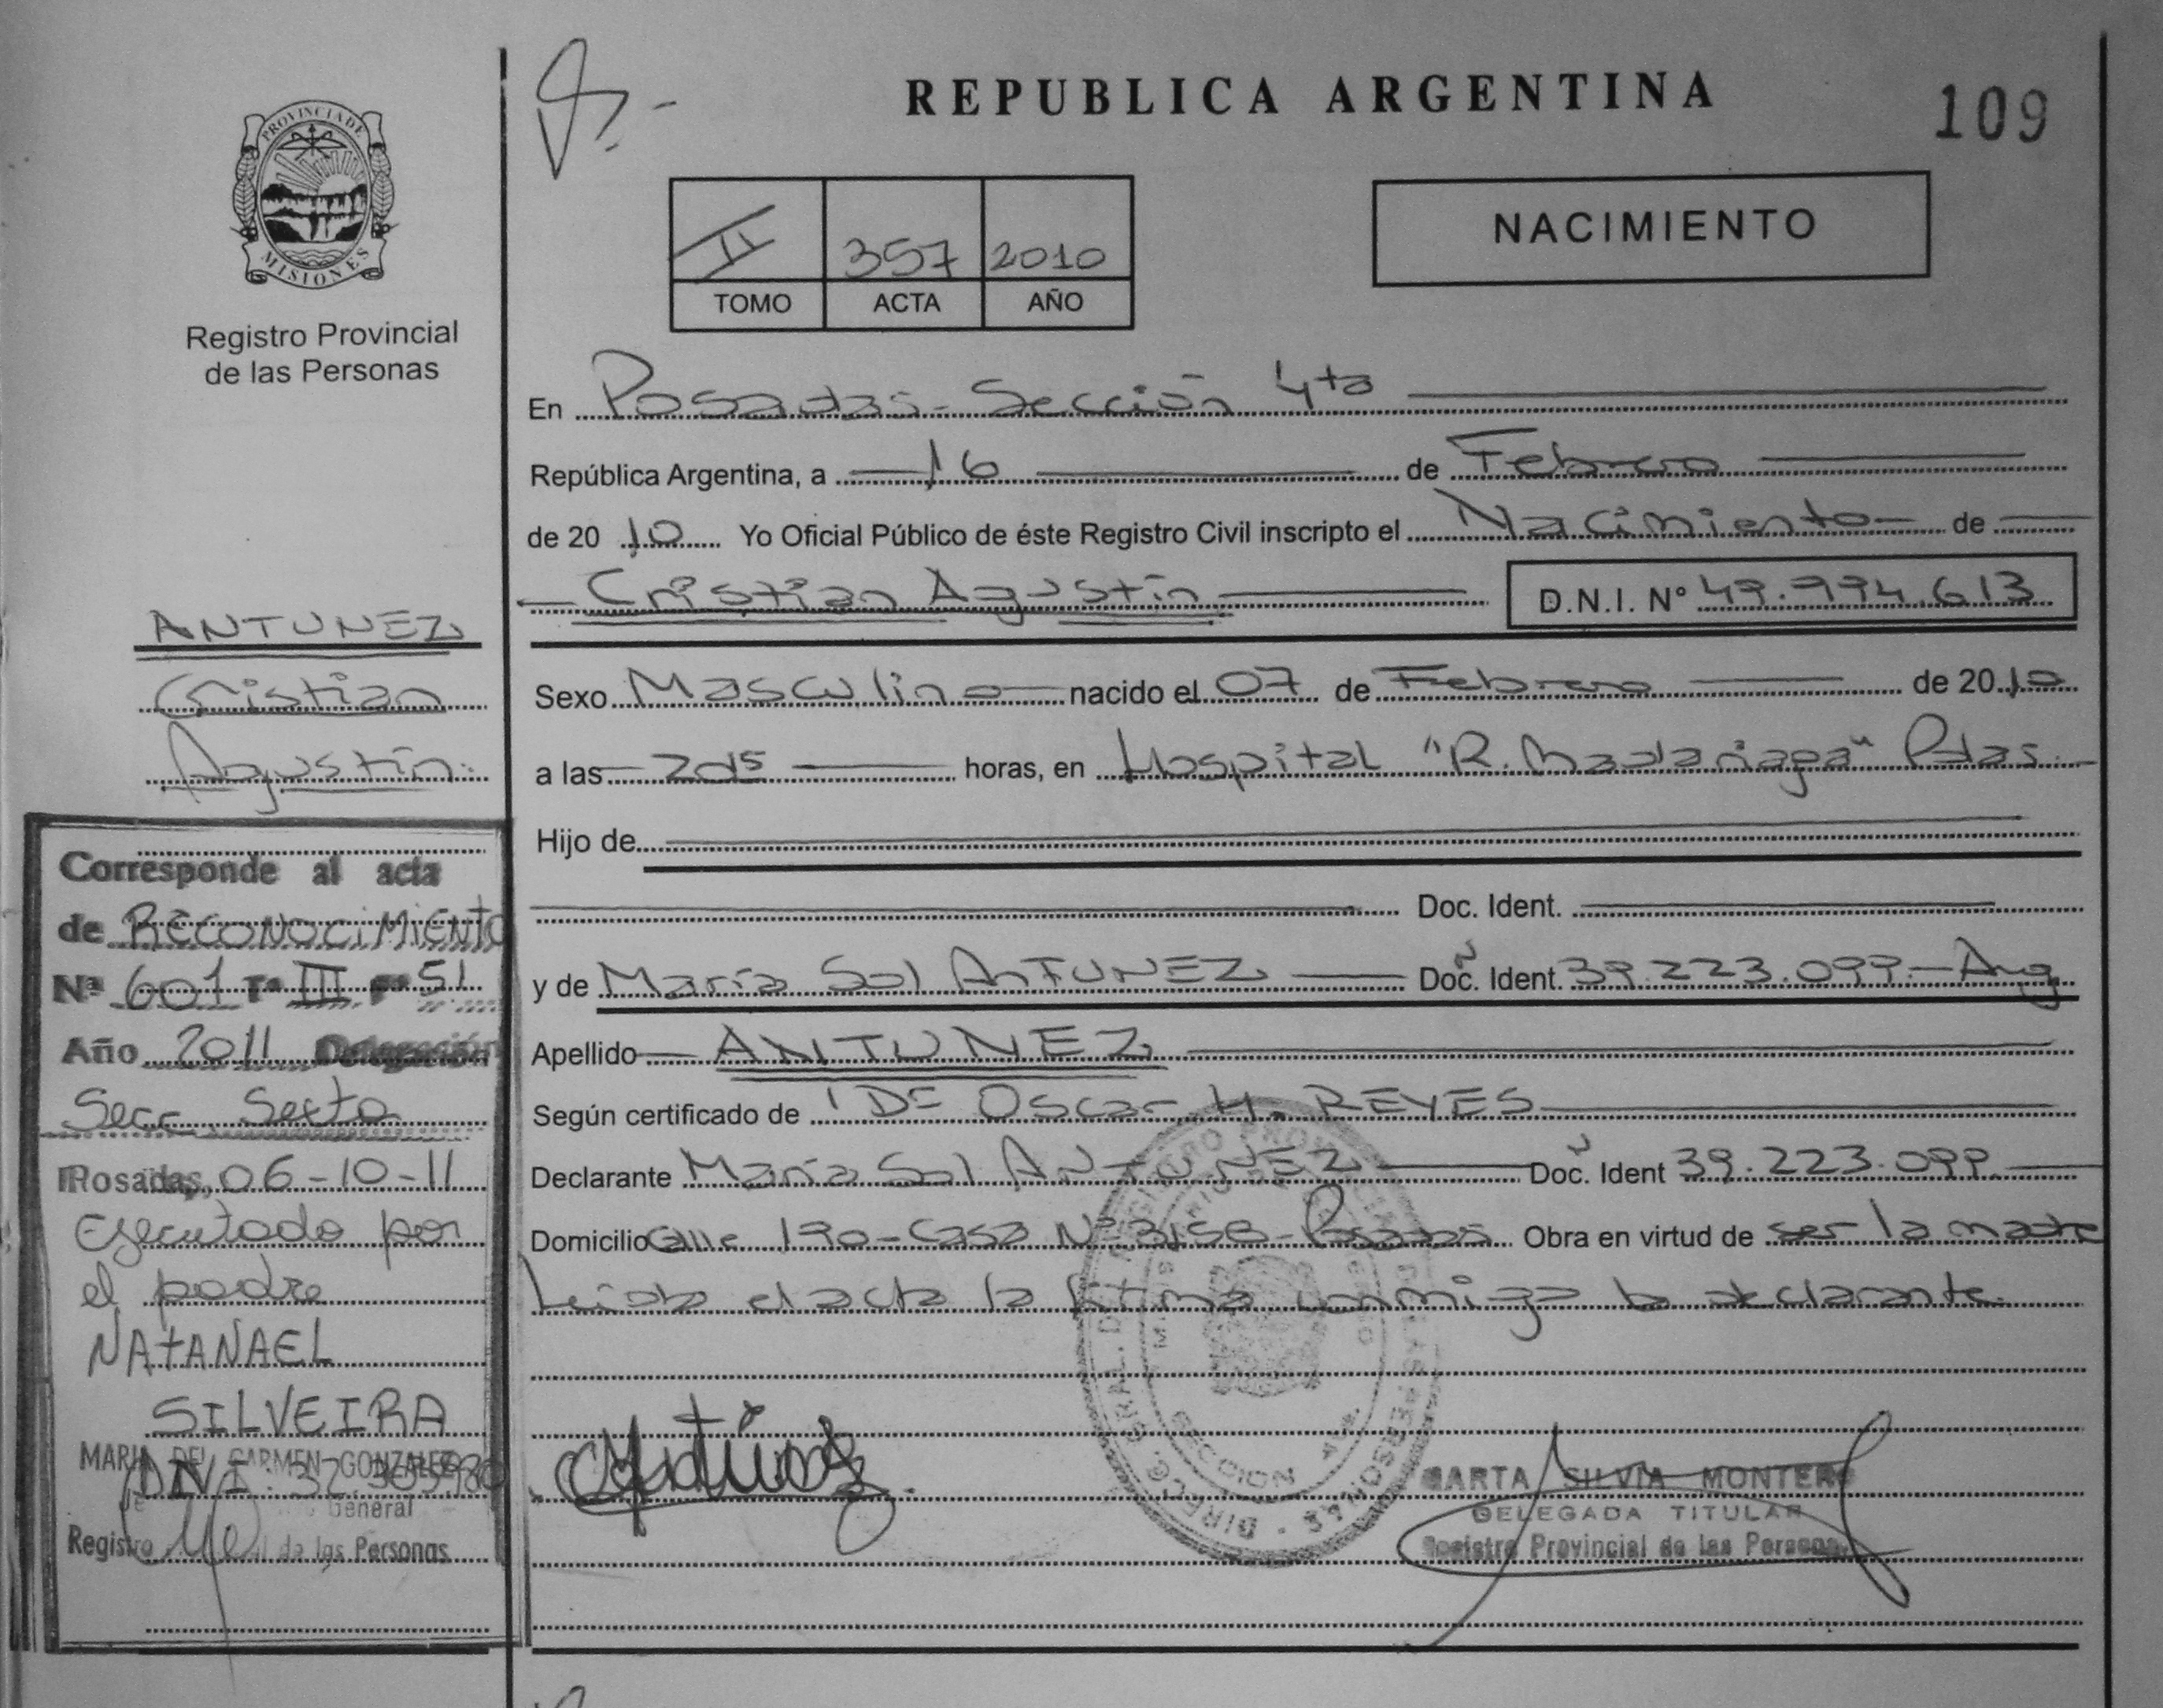 REPUBLICA ARGENTINA
109
PROVINCIA DE
MISIONES
Registro Provincial
de las Personas
II 357 2010
TOMO ACTA AÑO
NACIMIENTO
En Posadas - Sección 4ta
República Argentina, a 16 de Febrero
de 20 10 Yo Oficial Público de éste Registro Civil inscripto el Nacimiento de
Cristian Agustín D.N.I. Nº 49.994.613
Sexo Masculino nacido el 07 de Febrero de 20 10
a las 2:15 horas, en Hospital "R. Madariaga" Pdas.
Hijo de
Doc. Ident.
y de María Sol ANTUNEZ Doc. Ident. 39.223.099.- Arg
Apellido ANTUNEZ
Según certificado de Oscar H. REYES
Declarante María Sol ANTUNEZ Doc. Ident 39.223.099.
Domicilio Calle 190 - Casa Nº 3158 - Posadas Obra en virtud de ser la madre
Leída el acta la firma conmigo la declarante.
SECCION 4ta.
MARTA SILVIA MONTERO
DELEGADA TITULAR
Registro Provincial de las Personas
ANTUNEZ
Cristian
Agustín.
Corresponde al acta
de RECONOCIMIENTO
Nº 601 Tº III Fº 51
Año 2011 Delegación
Secc. Sexta
Posadas, 06-10-11
Ejecutado por
el padre
NATANAEL
SILVEIRA
MARIA DEL CARMEN GONZALEZ
DNI: 37.
General
Registro de las Personas